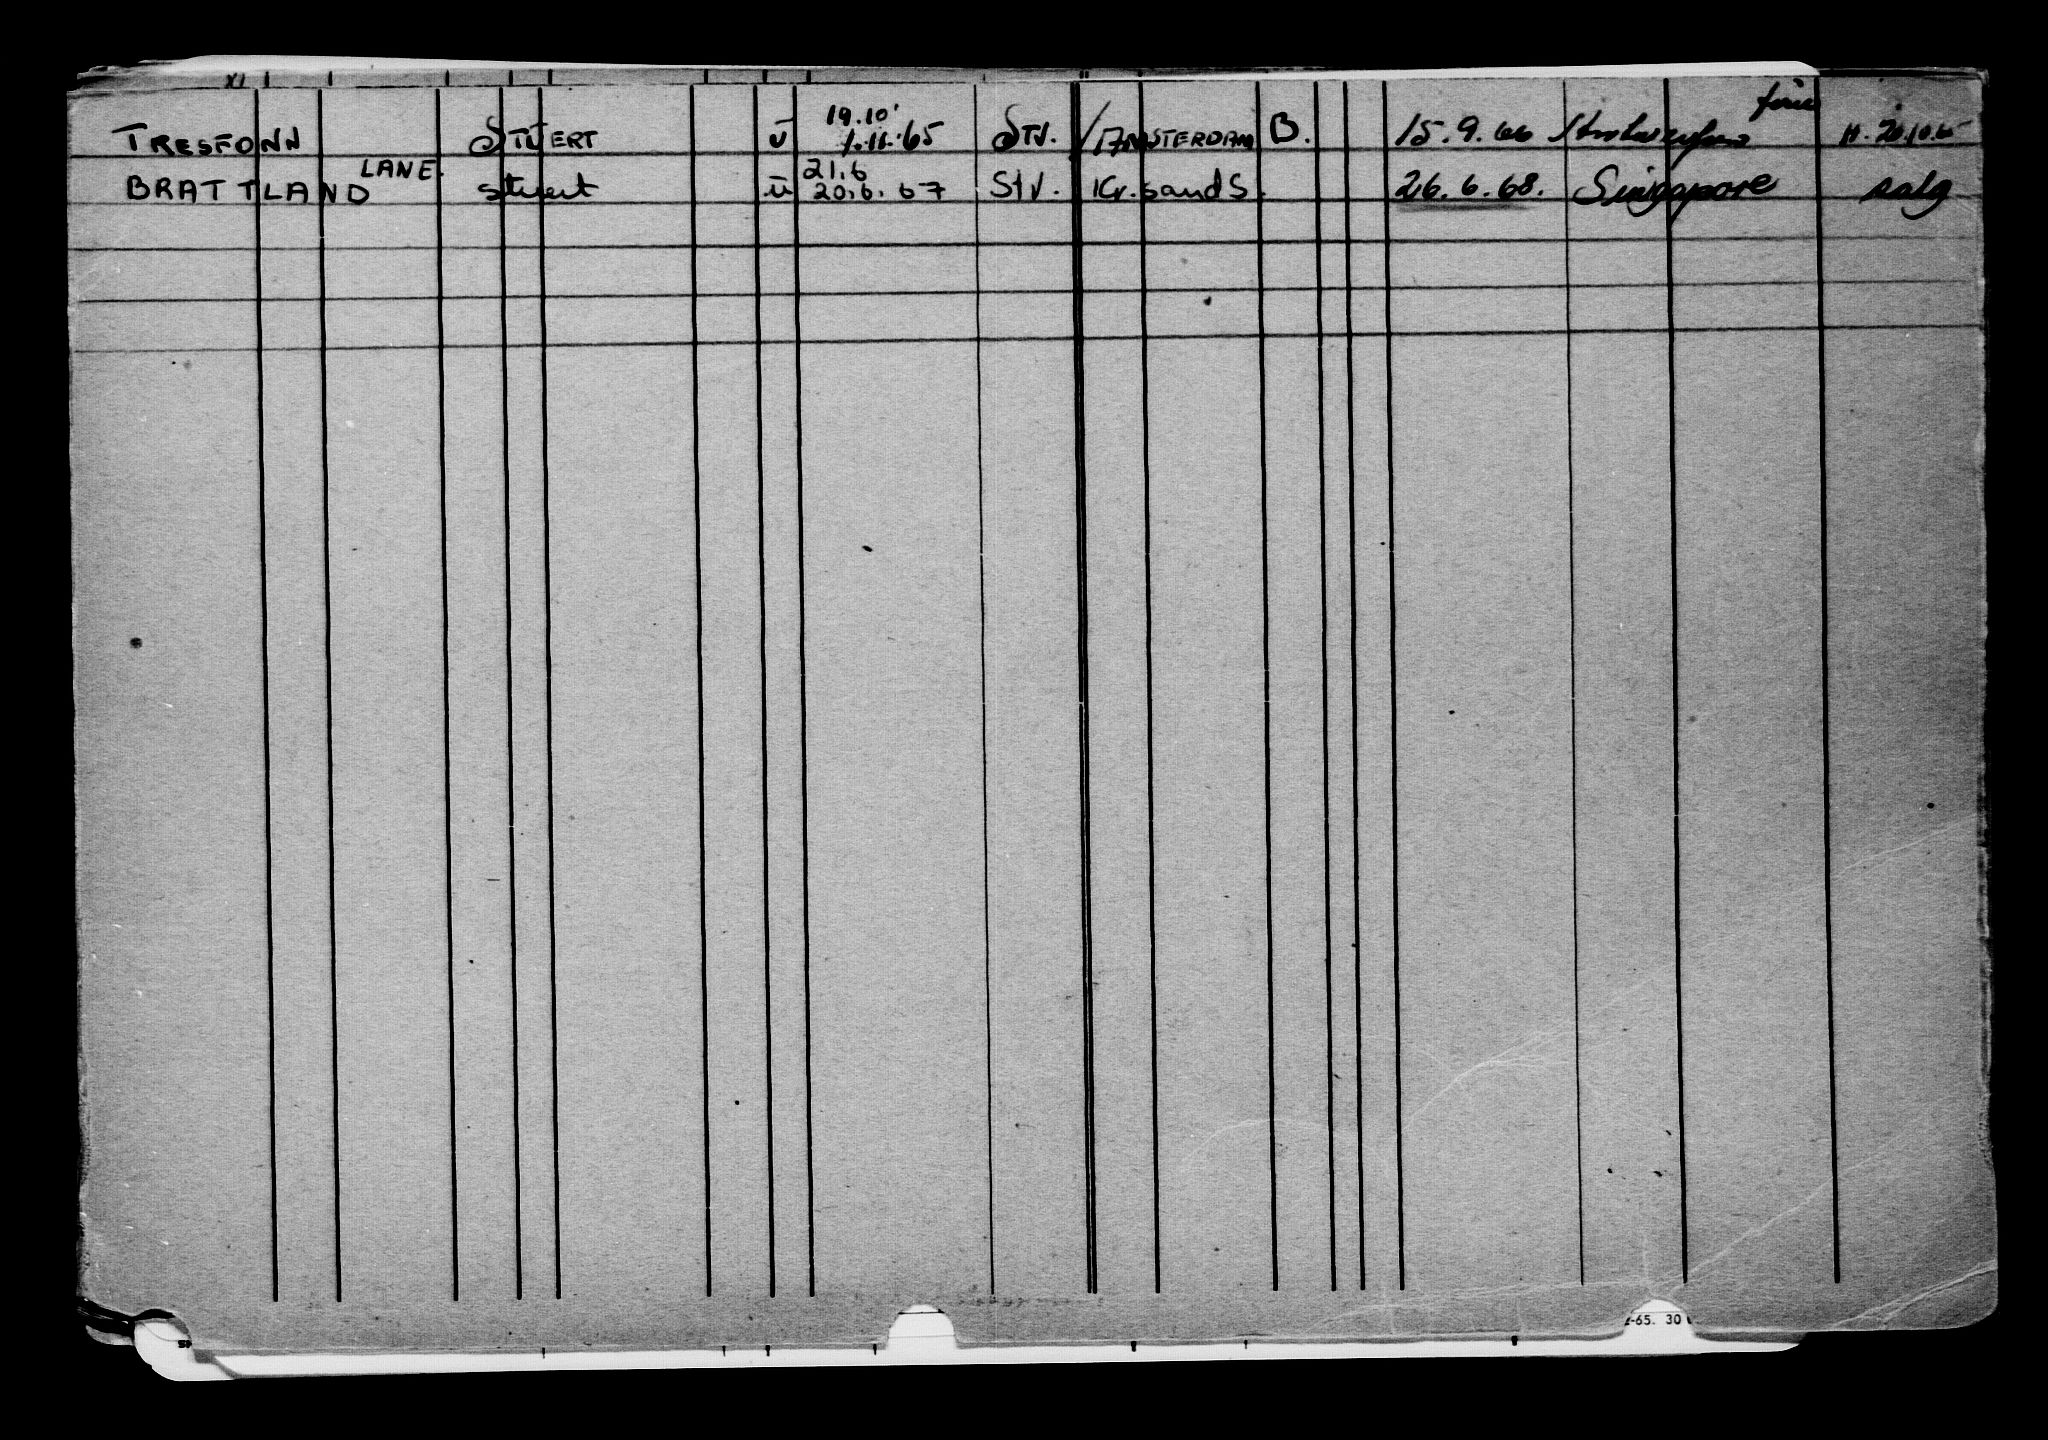 XI
19.10
TRESFONN STUERT u 1.11.65 STV. / AMSTERDAM B. 15.9.66 H. 20.10.65
LANE. 21.6
BRATTLAND stuert u 20.6.67 Stv. Kr.sand S. 26.6.68. Singapore salg
-65. 30